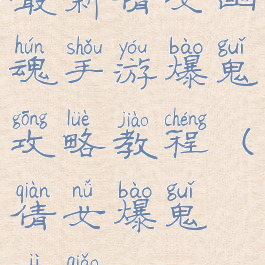 最新倩女幽
hún shǒu yóu bào guǐ
魂手游爆鬼
gōng lüè jiào chéng
攻略教程（
qiàn nǚ bào guǐ
倩女爆鬼
jì qiǎo